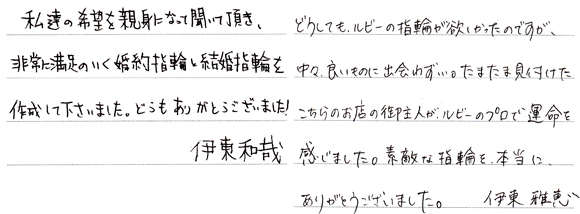 私達の希望を親身になって聞いて頂き、
非常に満足のいく婚約指輪と結婚指輪を
作成して下さいました。どうもありがとうございました!
伊東和哉
どうしても、ルビーの指輪が欲しかったのですが、
中々、良いものに出会わずい。たまたま見付けた
こちらのお店の御主人が、ルビーのプロで運命を
感じました。素敵な指輪を、本当に、
ありがとうございました。 伊東 雅恵